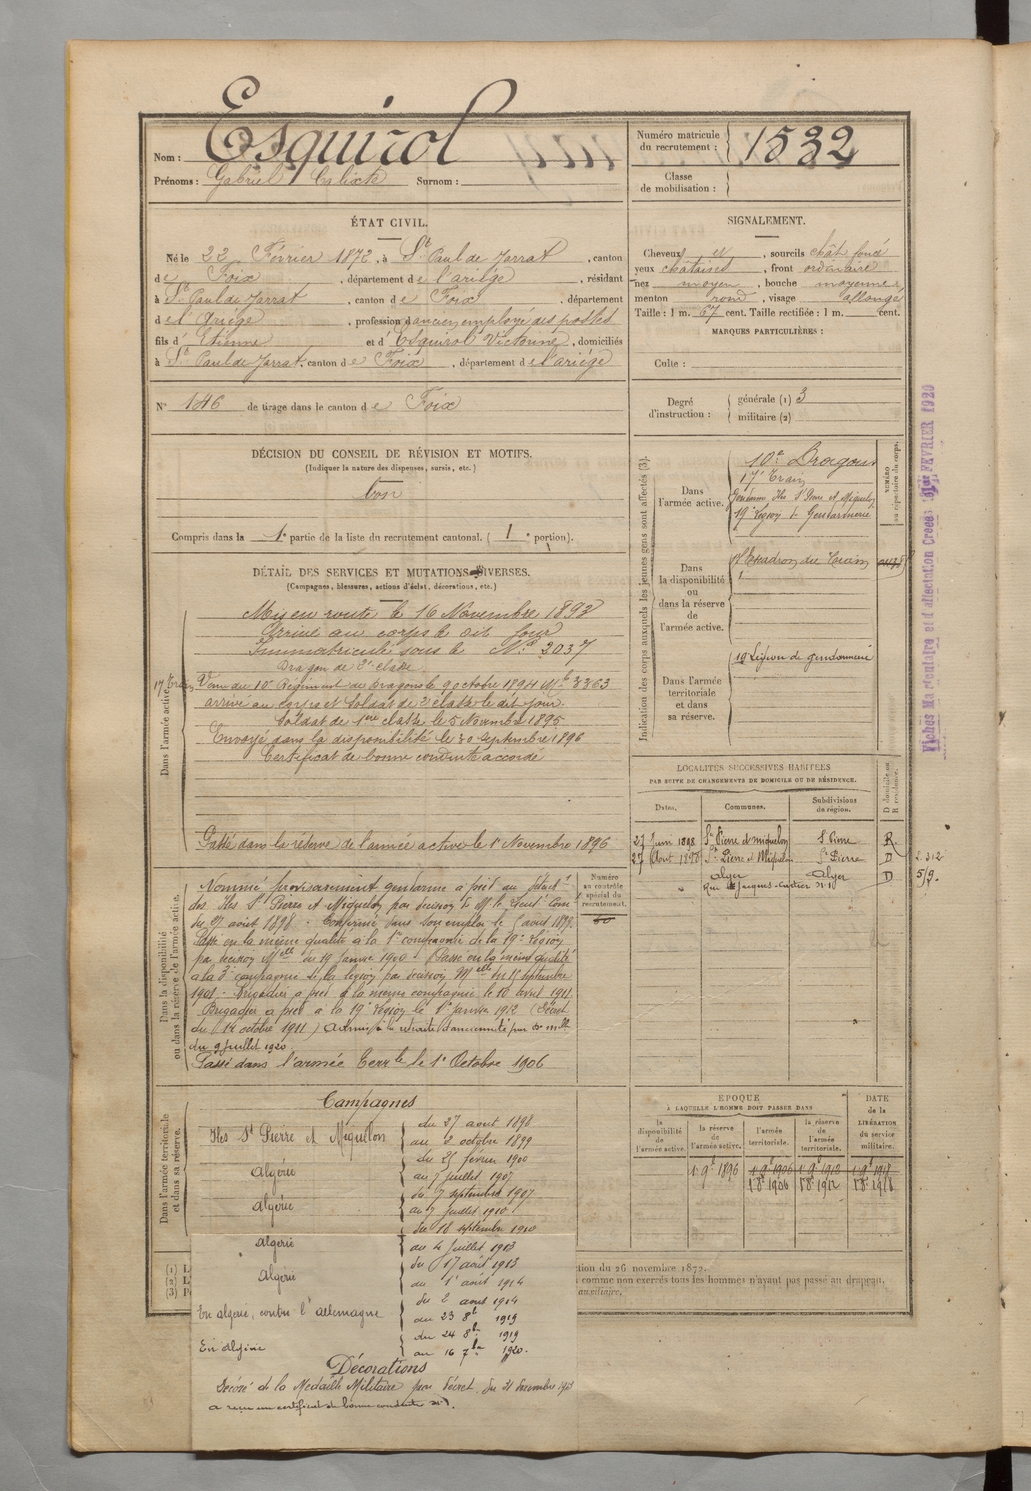 Nom : Esquirol
Prénoms : Gabriel Calixte Surnom :
Numéro matricule
du recrutement : 1532
Classe
de mobilisation :
ÉTAT CIVIL.
Né le 22 Février 1872, à St Paul de Jarrat, canton
de Foix, département de l'ariège, résidant
à St Paul de Jarrat, canton de Foix, département
de l'Ariège, profession d'ancien employé des postes
fils d' Etienne et d' Esquirol Victorine, domiciliés
à St Paul de Jarrat, canton de Foix, département de l'ariège
N° 146 de tirage dans le canton de Foix
SIGNALEMENT.
Cheveux et, sourcils chât. foncé
yeux châtains, front ordinaire
nez moyen, bouche moyenne
menton rond, visage allongé
Taille : 1 m. 67 cent. Taille rectifiée : 1 m. cent.
MARQUES PARTICULIÈRES :
Culte :
Degré
d'instruction :
générale (1) 3
militaire (2)
DÉCISION DU CONSEIL DE RÉVISION ET MOTIFS.
(Indiquer la nature des dispenses, sursis, etc.)
bon
Compris dans la 1e partie de la liste du recrutement cantonal. ( 1 e portion).
DÉTAIL DES SERVICES ET MUTATIONS DIVERSES.
(Campagnes, blessures, actions d'éclat, décorations, etc.)
Dans l'armée active.
Mis en route le 16 Novembre 1892
Arrivé au corps le dit jour
Immatriculé sous le N° 2037
Dragon de 2e classe
17e Train Venu du 10e Régiment de Dragons le 9 octobre 1894 Mle 3363
arrivé au corps et soldat de 2e classe le dit jour
Soldat de 1ère classe le 5 Novembre 1895
Envoyé dans la disponibilité le 30 Septembre 1896
Certificat de bonne conduite accordé
Passé dans la réserve de l'armée active le 1er Novembre 1896
Dans la disponibilité
ou dans la réserve de l'armée active.
Numéro
au contrôle
spécial du
recrutement.
Nommé provisoirement gendarme à pied au détacht
des Iles St Pierre et Miquelon par décision de Mr le
du 27 août 1898 - Confirmé dans son emploi le août 1898
Passé en la même qualité à la 1re compagnie de la 19e Légion
par décision Melle du 19 Janvier 1900 - Passé en la même qualité
à la 3e compagnie de la légion par décision Melle du 11 Septembre
1901 - Brigadier à pied à la même compagnie le 10 avril 1911
Brigadier à pied à la 19e Légion le 1er Janvier 1912 (Décret
du 14 octobre 1911) Admis à la retraite d'ancienneté par mlle
du 9 Juillet 1920
Passé dans l'armée Terrle le 1er Octobre 1906
Dans l'armée territoriale
et dans sa réserve.
Campagnes
Iles St Pierre et Miquelon { du 27 aout 1898
au 2 octobre 1899
Algérie { du 25 février 1900
au 7 juillet 1907
Algérie { du 7 septembre 1907
au 9 juillet 1910
Algérie { du 18 septembre 1910
au 4 Juillet 1913
Algérie { du 17 août 1913
au 1er août 1914
En algérie, contre l'allemagne { du 2 aout 1914
au 23 8bre 1919
En Algérie { du 24 8bre 1919
au 16 7bre 1920.
Décorations
Décoré de la Médaille Militaire par décret du 31 décembre
a reçu un certificat de bonne conduite
Indication des corps auxquels les jeunes gens sont affectés (3).
NUMÉRO
au répertoire du corps.
Dans
l'armée active.
10e Dragons
17e Train
Gendarmerie Iles St Pierre et Miquelon
19e Légion de Gendarmerie
Dans
la disponibilité
ou
dans la réserve
de
l'armée active.
17e Escadron du Train
Dans l'armée
territoriale
et dans
sa réserve.
19e Légion de gendarmerie
LOCALITÉS SUCCESSIVES HABITÉES
PAR SUITE DE CHANGEMENTS DE DOMICILE OU DE RÉSIDENCE.
Dates. Communes. Subdivisions
de région. D domicile ou
R résidence.
27 Juin 1898 St Pierre et Miquelon St Pierre R
27 Août 1898 St Pierre et Miquelon St Pierre D
Alger Alger D
Rue Jacques-Cartier
ÉPOQUE
À LAQUELLE L'HOMME DOIT PASSER DANS
DATE
de la
LIBÉRATION
du service
militaire.
la
disponibilité
de
l'armée active.
la réserve
de
l'armée active.
l'armée
territoriale.
la réserve
de
l'armée
territoriale.
1 9bre 1896 1 9bre 1906 1 9bre 1912 1 9bre 1918
1 8bre 1906 1 8bre 1912 1 8bre 1918
(1)
(2)
(3)
ction du 26 novembre 1872.
comme non exercés tous les hommes n'ayant pas passé au drapeau.
auxiliaire.
Fiches Matriculaire et d'affectation Créées FEVRIER 1920